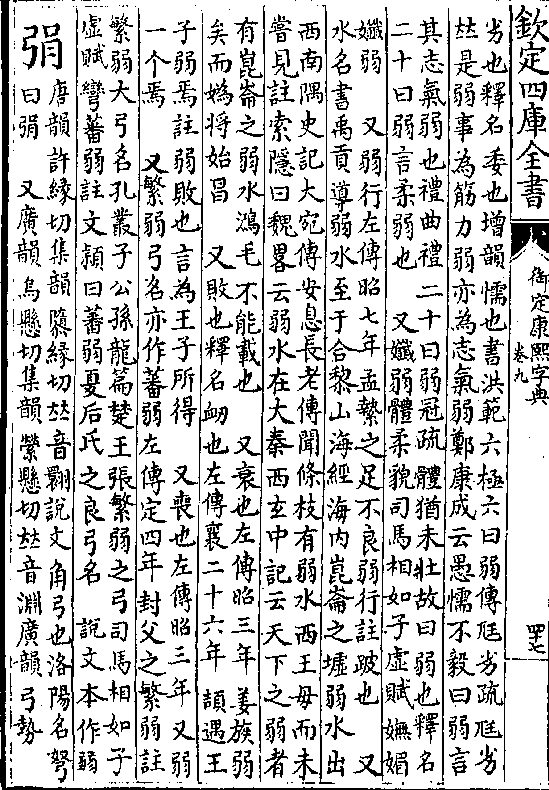 欽定四庫全書
御定康熙字典
卷九
四十七
劣也釋名委也增韻懦也書洪範六極六曰弱傳尫劣疏尫劣
𠀤是弱事為筋力弱亦為志氣弱鄭康成云愚懦不毅曰弱言
其志氣弱也禮曲禮二十曰弱冠疏體猶未壯故曰弱也釋名
二十曰弱言柔弱也 又孅弱體柔貌司馬相如子虛賦嫵媚
孅弱 又弱行左傳昭七年孟縶之足不良弱行註跛也 又
水名書禹貢導弱水至于合黎山海經海内崑崙之墟弱水出
西南隅史記大宛傳安息長老傳聞條枝有弱水西王母而未
嘗見註索隱曰魏畧云弱水在大秦西玄中記云天下之弱者
有崑崙之弱水鴻毛不能載也 又衰也左傳昭三年姜族弱
矣而媯將始昌 又敗也釋名衂也左傳襄二十六年 頡遇王
子弱焉註弱敗也言為王子所得 又喪也左傳昭三年又弱
一个焉 又繁弱弓名亦作蕃弱左傳定四年封父之繁弱註
繁弱大弓名孔叢子公孫龍篇楚王張繁弱之弓司馬相如子
虛賦彎蕃弱註文潁曰蕃弱夏后氏之良弓名 說文本作𢐧
弲
唐韻許緣切集韻隳緣切𠀤音翾說文角弓也洛陽名弩
曰弲 又廣韻烏懸切集韻縈懸切𠀤音淵廣韻弓勢